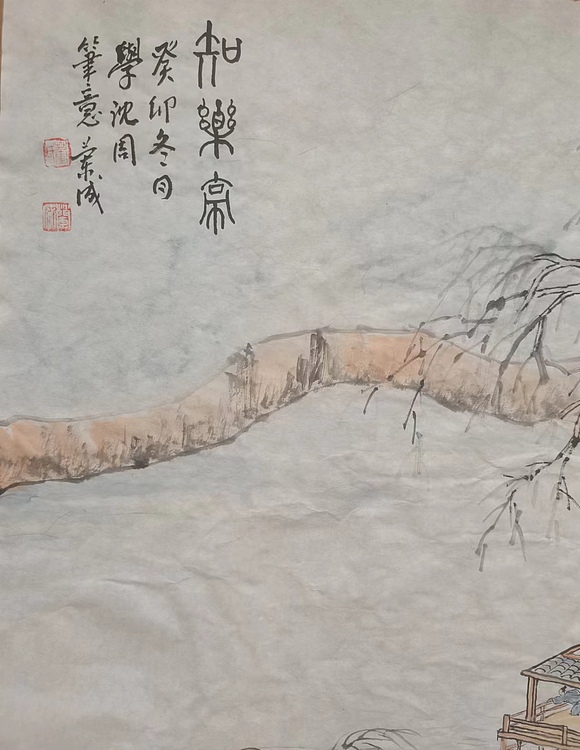 知樂亭
癸卯冬月
學沈周
筆意 榮成